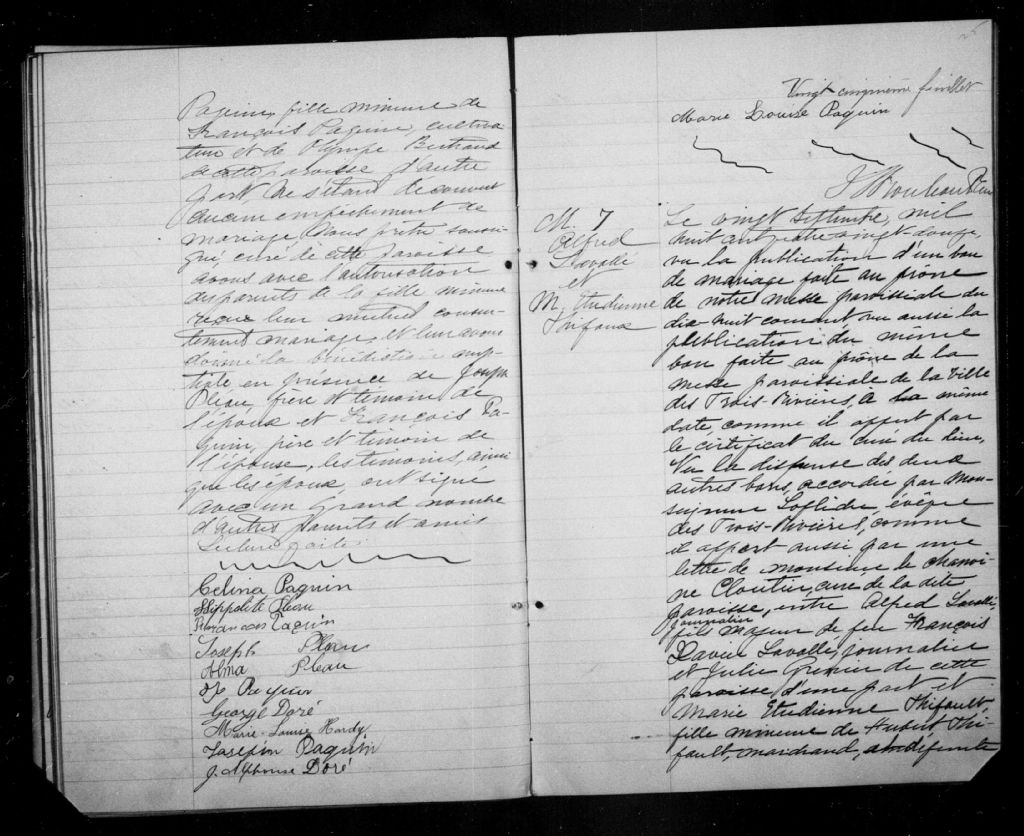 Paquin, fille mineure de
François Paquin, cultiva-
teur et de Olympe Bertrand
de cette paroisse d'autre
part, ne s'étant découvert
aucun empêchement de
mariage, Nous prêtre soussi-
gné, curé de cette paroisse
avons avec l'autorisation
des parents de la fille mineure
reçu leur mutuel consen-
tement mariage, et leur avons
donné la bénédiction nup-
tiale en présence de Joseph
Pleau, frère et témoin de
l'époux et François Pa-
quin, père et témoin de
l'épouse, les témoins, ainsi
que les époux, ont signé
avec un Grand nombre
d'autres parents et amis
Lecture faite.
Celina Paquin
Hippolite Pleau
François Paquin
Joseph Pleau
Alma Pleau
George Doré
Marie-Louise Hardy
Joseph Paquin
J. Alphonse Doré
Vingt cinquième feuillet
Marie Louise Paquin
M. 7
Alfred
Lavallé
et
M. Etudienne
Thifault
Le vingt septembre, mil
huit cent quatre vingt douze,
vu la publication d'un ban
de mariage faite au prône
de notre messe paroissiale du
dix huit courant vu aussi la
publication du même
ban faite au prône de la
messe paroissiale de la Ville
des Trois-Rivières, à la même
date, comme il appert par
le certificat du curé du lieu,
Vu la dispense des deux
autres bans, accordée par Mon-
seigneur Laflèche, évêque
des Trois-Rivières, comme
il appert aussi par une
lettre de monsieur le chanoi-
ne Cloutier, curé de la dite
paroisse, entre Alfred Lavallé,
journalier
fils majeur de feu François
Xavier Lavallé, journalier
et Julie Grenier de cette
paroisse d'une part et
Marie Etudienne Thifault,
fille mineure de Hubert Thi-
fault, marchand, et défunte